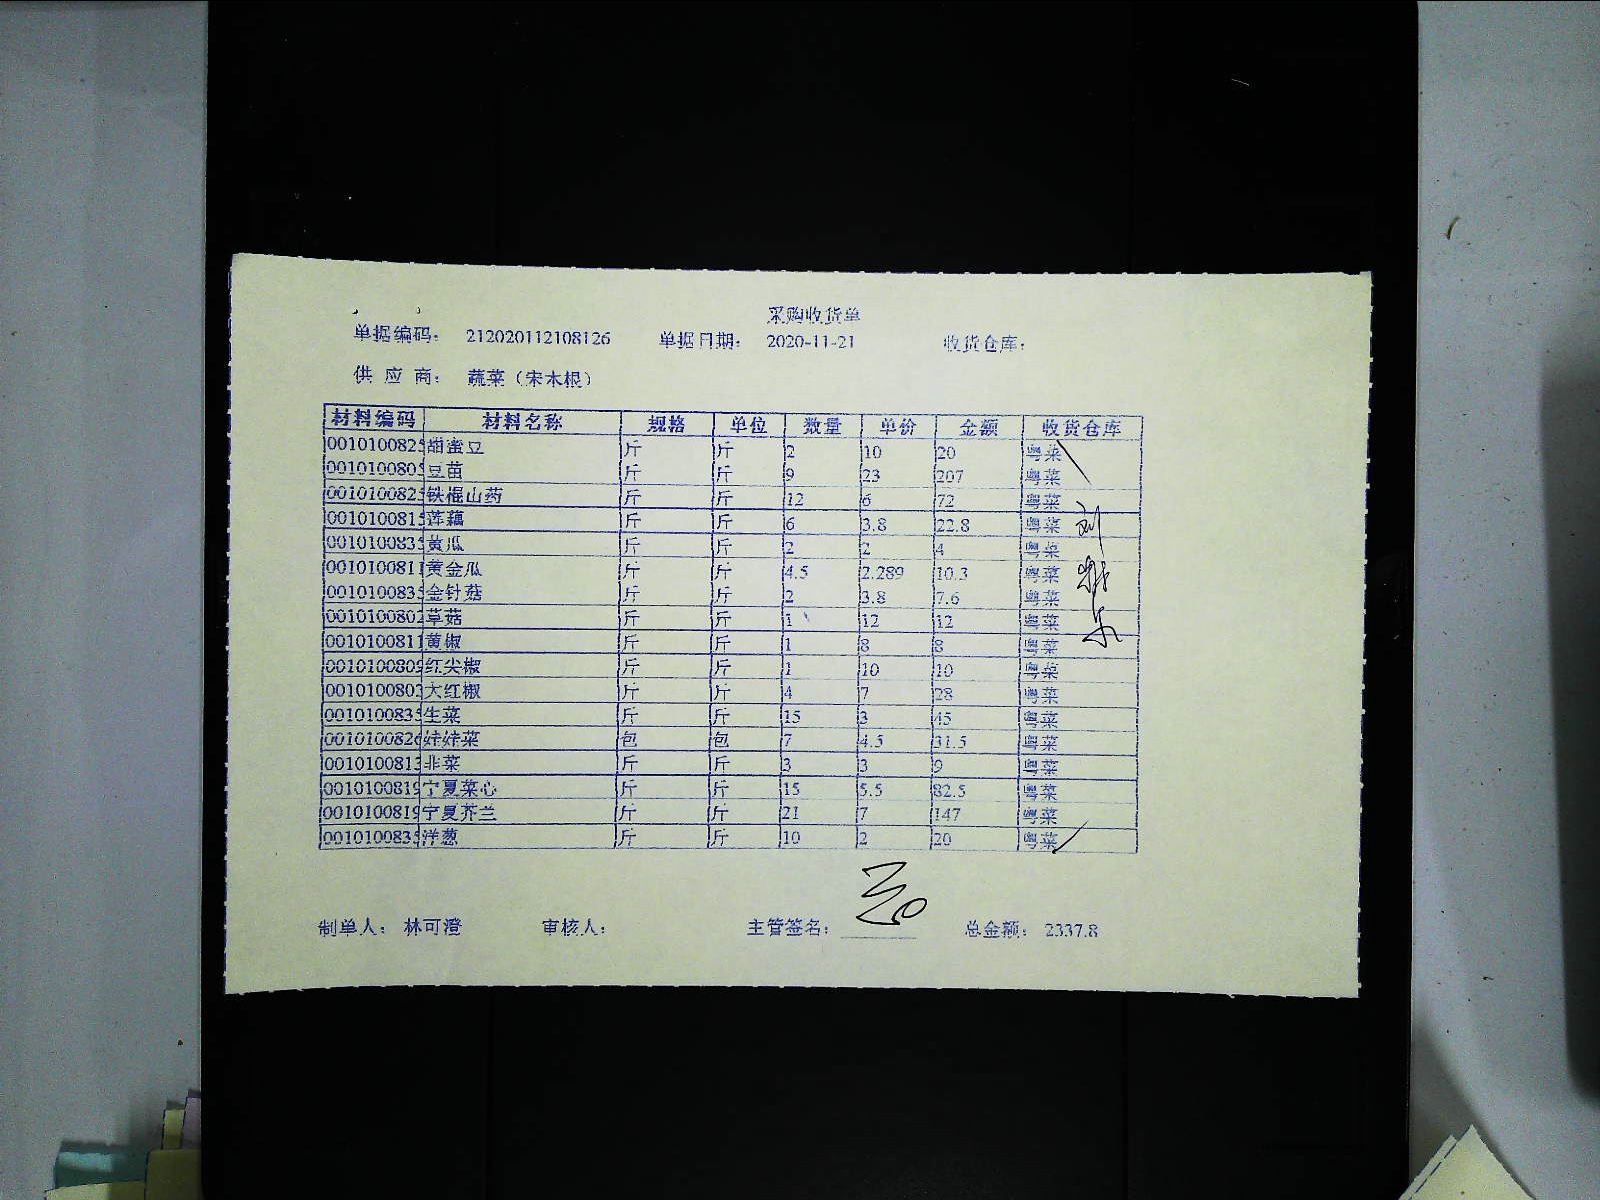 采购收货单
单据编码： 212020112108126 单据日期： 2020-11-21 收货仓库：
供 应 商： 蔬菜（宋木根）
材料编码 材料名称 规格 单位 数量 单价 金额 收货仓库
0010100825 甜蜜豆 斤 斤 2 10 20 粤菜
0010100805 豆苗 斤 斤 9 23 207 粤菜
0010100825 铁棍山药 斤 斤 12 6 72 粤菜
0010100815 莲藕 斤 斤 6 3.8 22.8 粤菜
0010100835 黄瓜 斤 斤 2 2 4 粤菜
0010100811 黄金瓜 斤 斤 4.5 2.289 10.3 粤菜
0010100835 金针菇 斤 斤 2 3.8 7.6 粤菜
0010100802 草菇 斤 斤 1 12 12 粤菜
0010100811 黄椒 斤 斤 1 8 8 粤菜
0010100809 红尖椒 斤 斤 1 10 10 粤菜
0010100803 大红椒 斤 斤 4 7 28 粤菜
0010100835 生菜 斤 斤 15 3 45 粤菜
0010100826 娃娃菜 包 包 7 4.5 31.5 粤菜
0010100813 韭菜 斤 斤 3 3 9 粤菜
0010100819 宁夏菜心 斤 斤 15 5.5 82.5 粤菜
0010100819 宁夏芥兰 斤 斤 21 7 147 粤菜
0010100835 洋葱 斤 斤 10 2 20 粤菜
制单人： 林可澄 审核人： 主管签名： 总金额： 2337.8